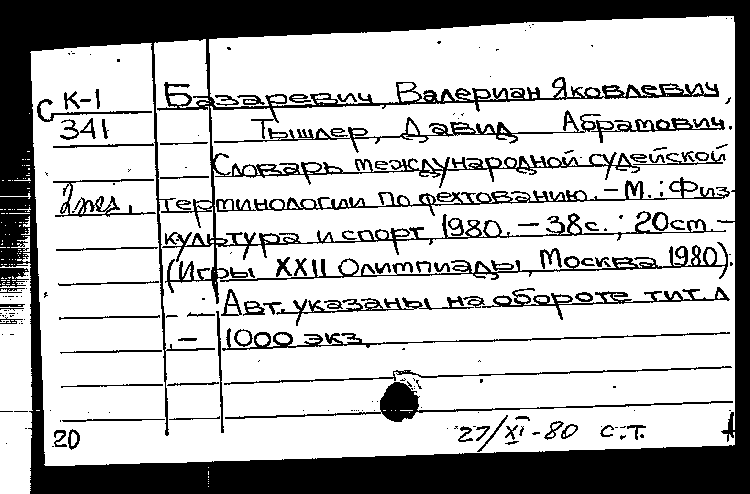 С К-1 Базаревич, Валериан Яковлевич,
341 Тышлер, Давид Абрамович.
Словарь международной судейской
2 экз. терминологии по фехтованию. – М.: Физ-
культура и спорт, 1980. – 38с.; 20см. –
(Игры XXII Олимпиады, Москва 1980).
Авт. указаны на обороте тит. л
– 1000 экз.
20 27/XI-80 С.Т.